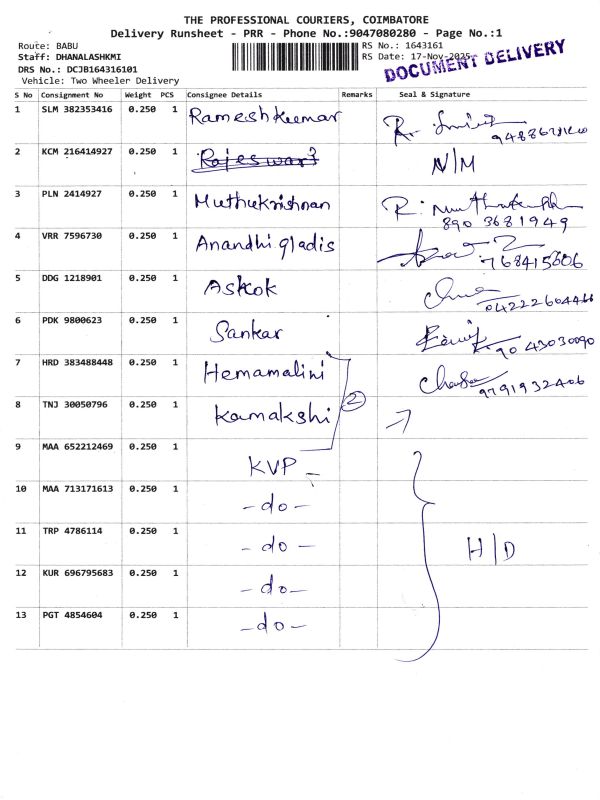 THE PROFESSIONAL COURIERS, COIMBATORE
Delivery Runsheet - PRR - Phone No.:9047080280 - Page No.:1
Route: BABU
Staff: DHANALASHKMI
DRS No.: DCJB164316101
Vehicle: Two Wheeler Delivery
RS No.: 1643161
RS Date: 17-Nov-2025
DOCUMENT DELIVERY
S No Consignment No Weight PCS Consignee Details Remarks Seal & Signature
1 SLM 382353416 0.250 1 Rameshkumar
2 KCM 216414927 0.250 1 Rajeswari N/M
3 PLN 2414927 0.250 1 Muthukrishnan
890 3681949
4 VRR 7596730 0.250 1 Anandhi gladis
768415606
5 DDG 1218901 0.250 1 Ashok
04222604466
6 PDK 9800623 0.250 1 Sankar
90 43030090
7 HRD 383488448 0.250 1 Hemamalini
9791932406
8 TNJ 30050796 0.250 1 Kamakshi 2
9 MAA 652212469 0.250 1 KVP
10 MAA 713171613 0.250 1 -do-
11 TRP 4786114 0.250 1 -do- H/D
12 KUR 696795683 0.250 1 -do-
13 PGT 4854604 0.250 1 -do-